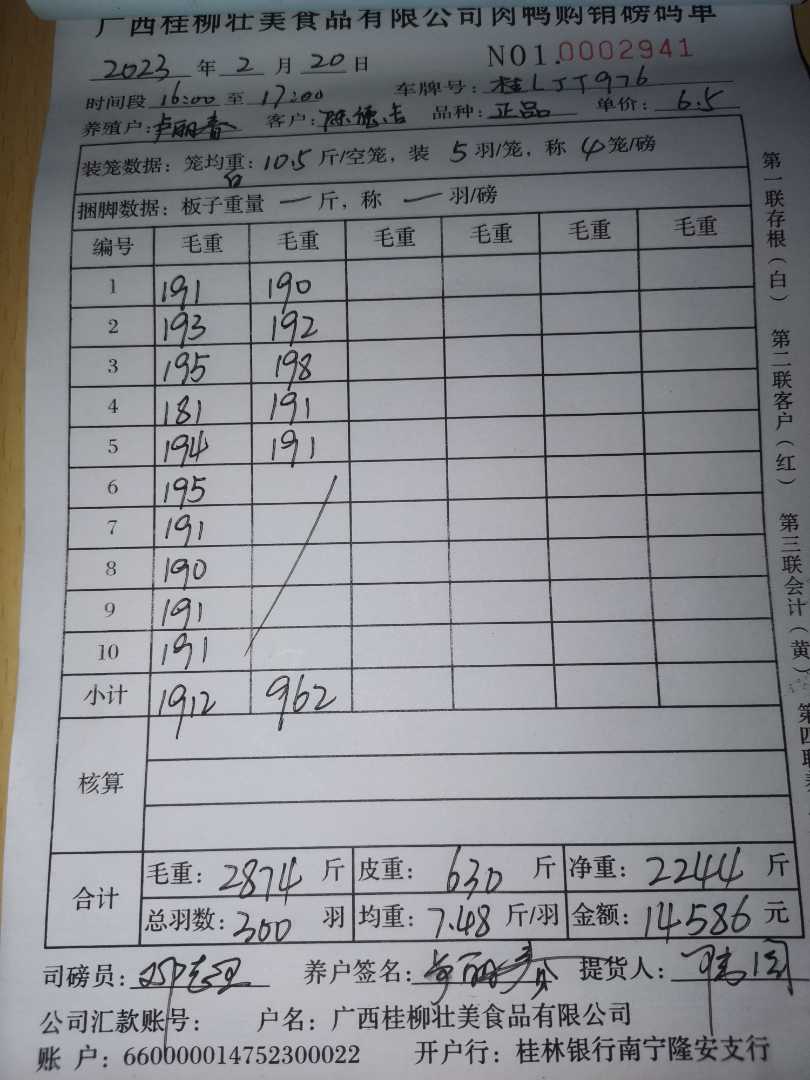 广西桂柳壮美食品有限公司肉鸭购销磅码单
2023 年 2 月 20 日 NO1.0002941
时间段 16:00 至 17:00 车牌号: 桂LJT976
养殖户: 卢丽春 客户: 陈德吉 品种: 正品 单价: 6.5
装笼数据: 笼均重: 10.5 斤/空笼, 装 5 羽/笼, 称 4 笼/磅
捆脚数据: 板子重量 一 斤, 称 一 羽/磅
编号 毛重 毛重 毛重 毛重 毛重 毛重
1 191 190
2 193 192
3 195 198
4 181 191
5 194 191
6 195
7 191
8 190
9 191
10 191
小计 1912 962
核算
合计 毛重: 2874 斤 皮重: 630 斤 净重: 2244 斤
总羽数: 300 羽 均重: 7.48 斤/羽 金额: 14586 元
司磅员: 养户签名: 提货人:
公司汇款账号: 户名: 广西桂柳壮美食品有限公司
账 户: 660000014752300022 开户行: 桂林银行南宁隆安支行
第一联存根(白) 第二联客户(红) 第三联会计(黄) 第四联养